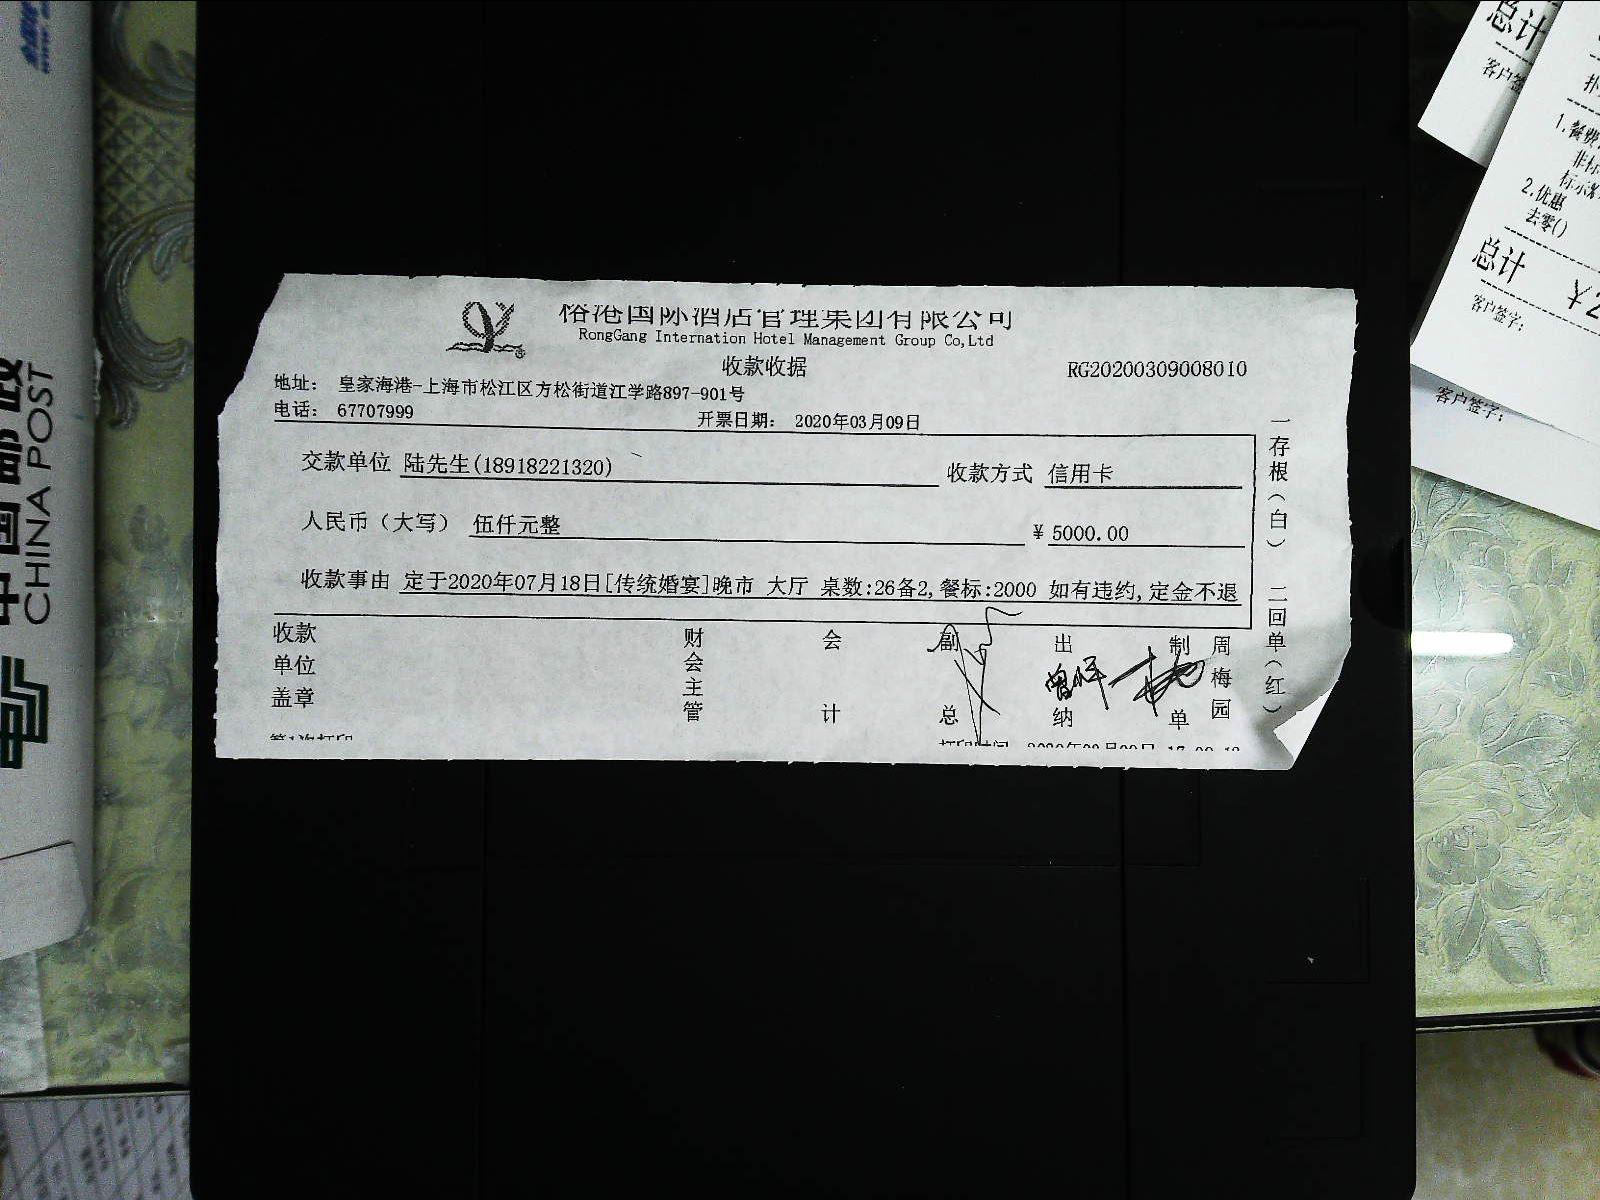 榕港国际酒店管理集团有限公司
RongGang Internation Hotel Management Group Co,Ltd
收款收据
RG20200309008010
地址： 皇家海港-上海市松江区方松街道江学路897-901号
电话： 67707999
开票日期： 2020年03月09日
交款单位 陆先生(18918221320)
收款方式 信用卡
人民币（大写） 伍仟元整
¥ 5000.00
收款事由 定于2020年07月18日[传统婚宴]晚市 大厅 桌数:26备2,餐标:2000 如有违约,定金不退
收款单位盖章
财会主管
会计
副总
出纳
制单
周梅园
第1次打印
打印时间
一存根（白） 二回单（红）
中国邮政
CHINA POST
总计
客户签
1.餐费
非标
标示
2.优惠
去零()
总计 ¥2
客户签字:
客户签字: